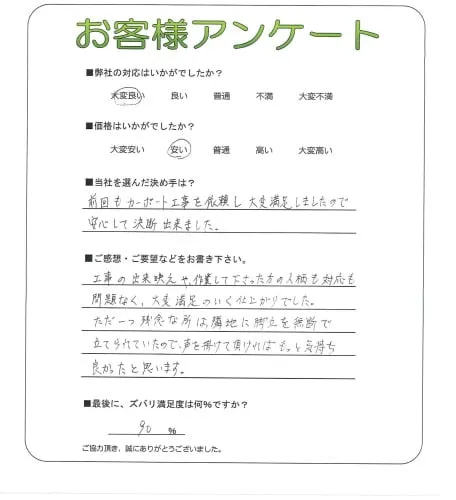 お客様アンケート
■弊社の対応はいかがでしたか？
大変良い 良い 普通 不満 大変不満
■価格はいかがでしたか？
大変安い 安い 普通 高い 大変高い
■当社を選んだ決め手は？
前回もカーポート工事を依頼し大変満足しましたので
安心して決断出来ました。
■ご感想・ご要望などをお書き下さい。
工事の出来映えや、作業して下さった方の人柄も対応も
問題なく、大変満足のいく仕上がりでした。
ただ一つ残念な所は隣地に脚立を無断で
立てられていたので、声を掛けて頂ければもっと気持ち
良かったと思います。
■最後に、ズバリ満足度は何％ですか？
90 ％
ご協力頂き、誠にありがとうございました。